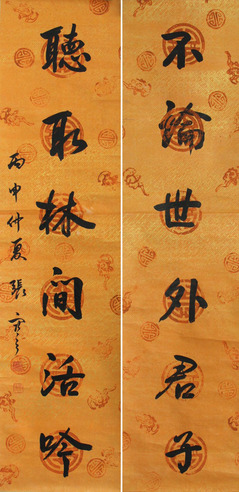 不論世外君子
聽取林間活吟
丙申仲夏 張